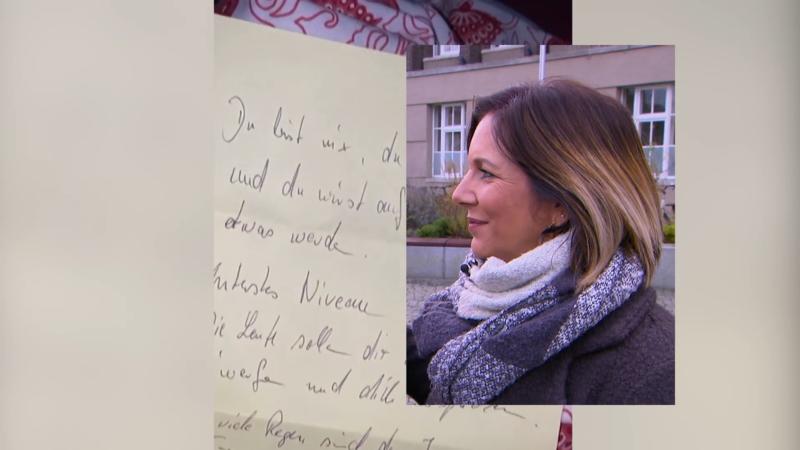 Du bist nix, du
und du wirst auf
etwas werden.
Unterstes Niveau
Die Leute sollen dir
werfen und dich
viele Regen sind d